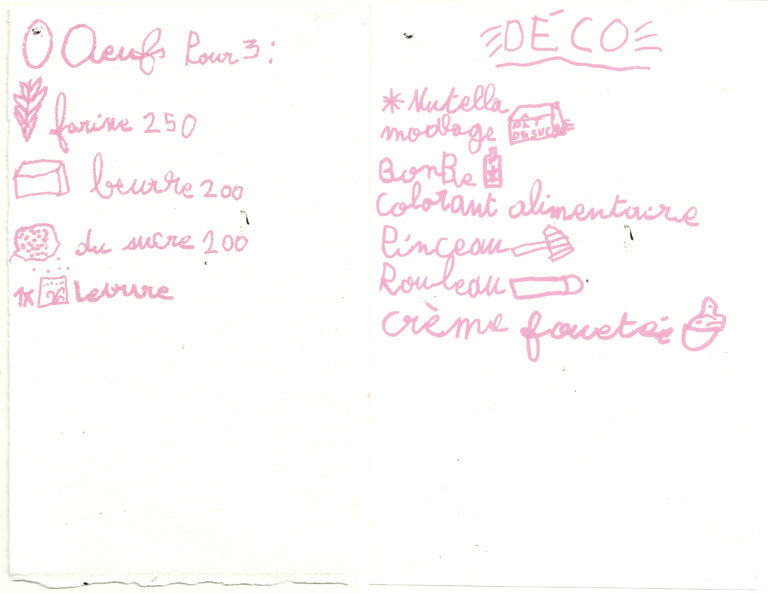 Oeufs Pour 3 :
farine 250
beurre 200
du sucre 200
1x Levure
DÉCO
* Nutella
modlage PÂT DE SUC
BonBe
Colorant alimentaire
Pinceau
Rouleau
crème fouetée